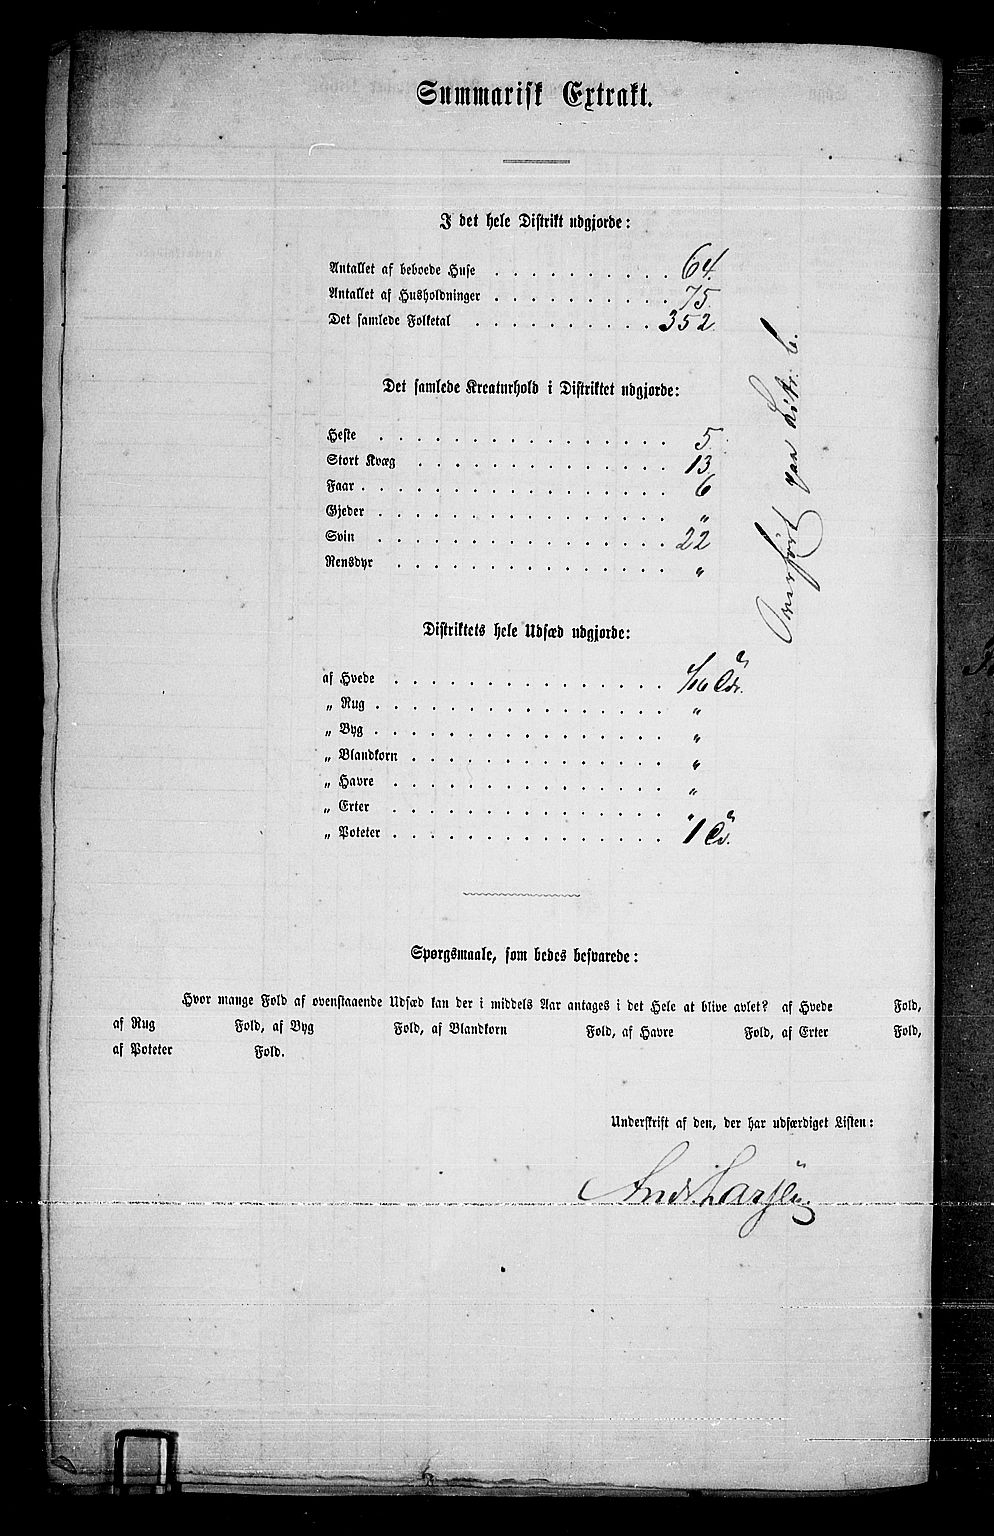 Summarisk Extrakt.
I det hele Distrikt udgjorde:
Antallet af beboede Huse . . . . . . . . . . 64.
Antallet af Husholdninger . . . . . . . . . . 75.
Det samlede Folketal . . . . . . . . . . 352
Det samlede Kreaturhold i Distriktet udgjorde:
Heste . . . . . . . . . . . . . . . . 5.
Stort Kvæg . . . . . . . . . . . . . . 13
Faar . . . . . . . . . . . . . . . . . 6
Gjeder . . . . . . . . . . . . . . . . "
Svin . . . . . . . . . . . . . . . . 22
Rensdyr . . . . . . . . . . . . . . . "
Overført paa Litr. C.
Distriktets hele Udsæd udgjorde:
af Hvede . . . . . . . . . . . . . . .
„ Rug . . . . . . . . . . . . . . . . "
„ Byg . . . . . . . . . . . . . . . . "
„ Blandkorn . . . . . . . . . . . . . "
„ Havre . . . . . . . . . . . . . . . "
„ Erter . . . . . . . . . . . . . . . "
„ Poteter . . . . . . . . . . . . . . 1
Spørgsmaale, som bedes besvarede:
Hvor mange Fold af ovenstaaende Udsæd kan der i middels Aar antages i det Hele at blive avlet? af Hvede Fold,
af Rug Fold, af Byg Fold, af Blandkorn Fold, af Havre Fold, af Erter Fold,
af Poteter Fold.
Underskrift af den, der har udfærdiget Listen:
Andr. Larsen